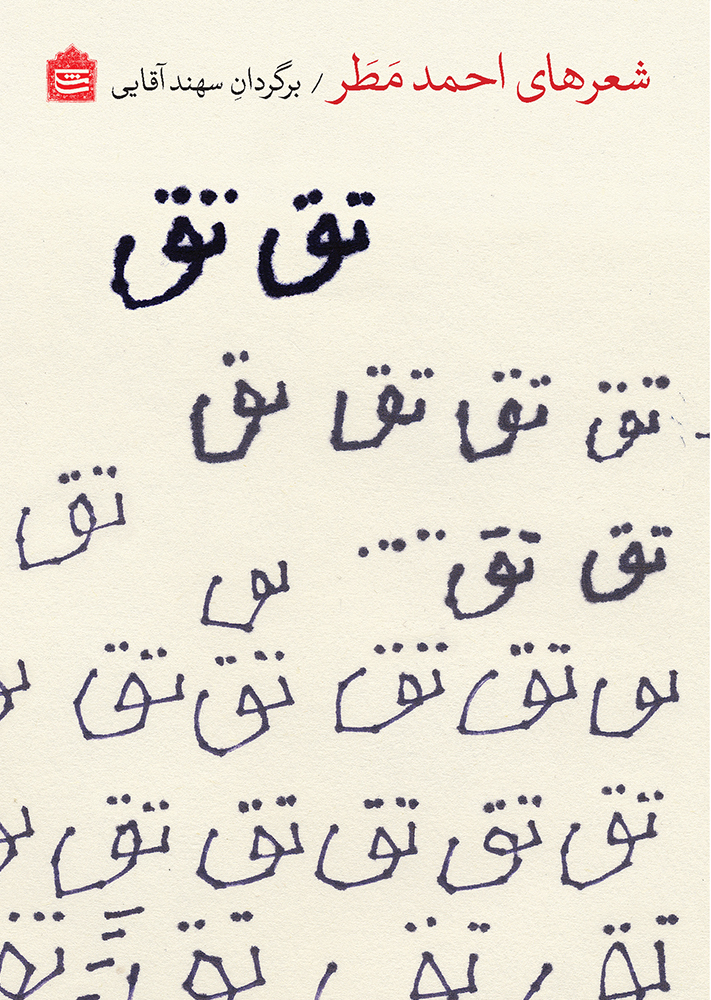 شعرهای احمد مَطَر / برگردانِ سهند آقایی
تق تق
تق تق تق تق
تق
تق تق
تق تق تق تق
تق تق تق تق تق
تق تق تق